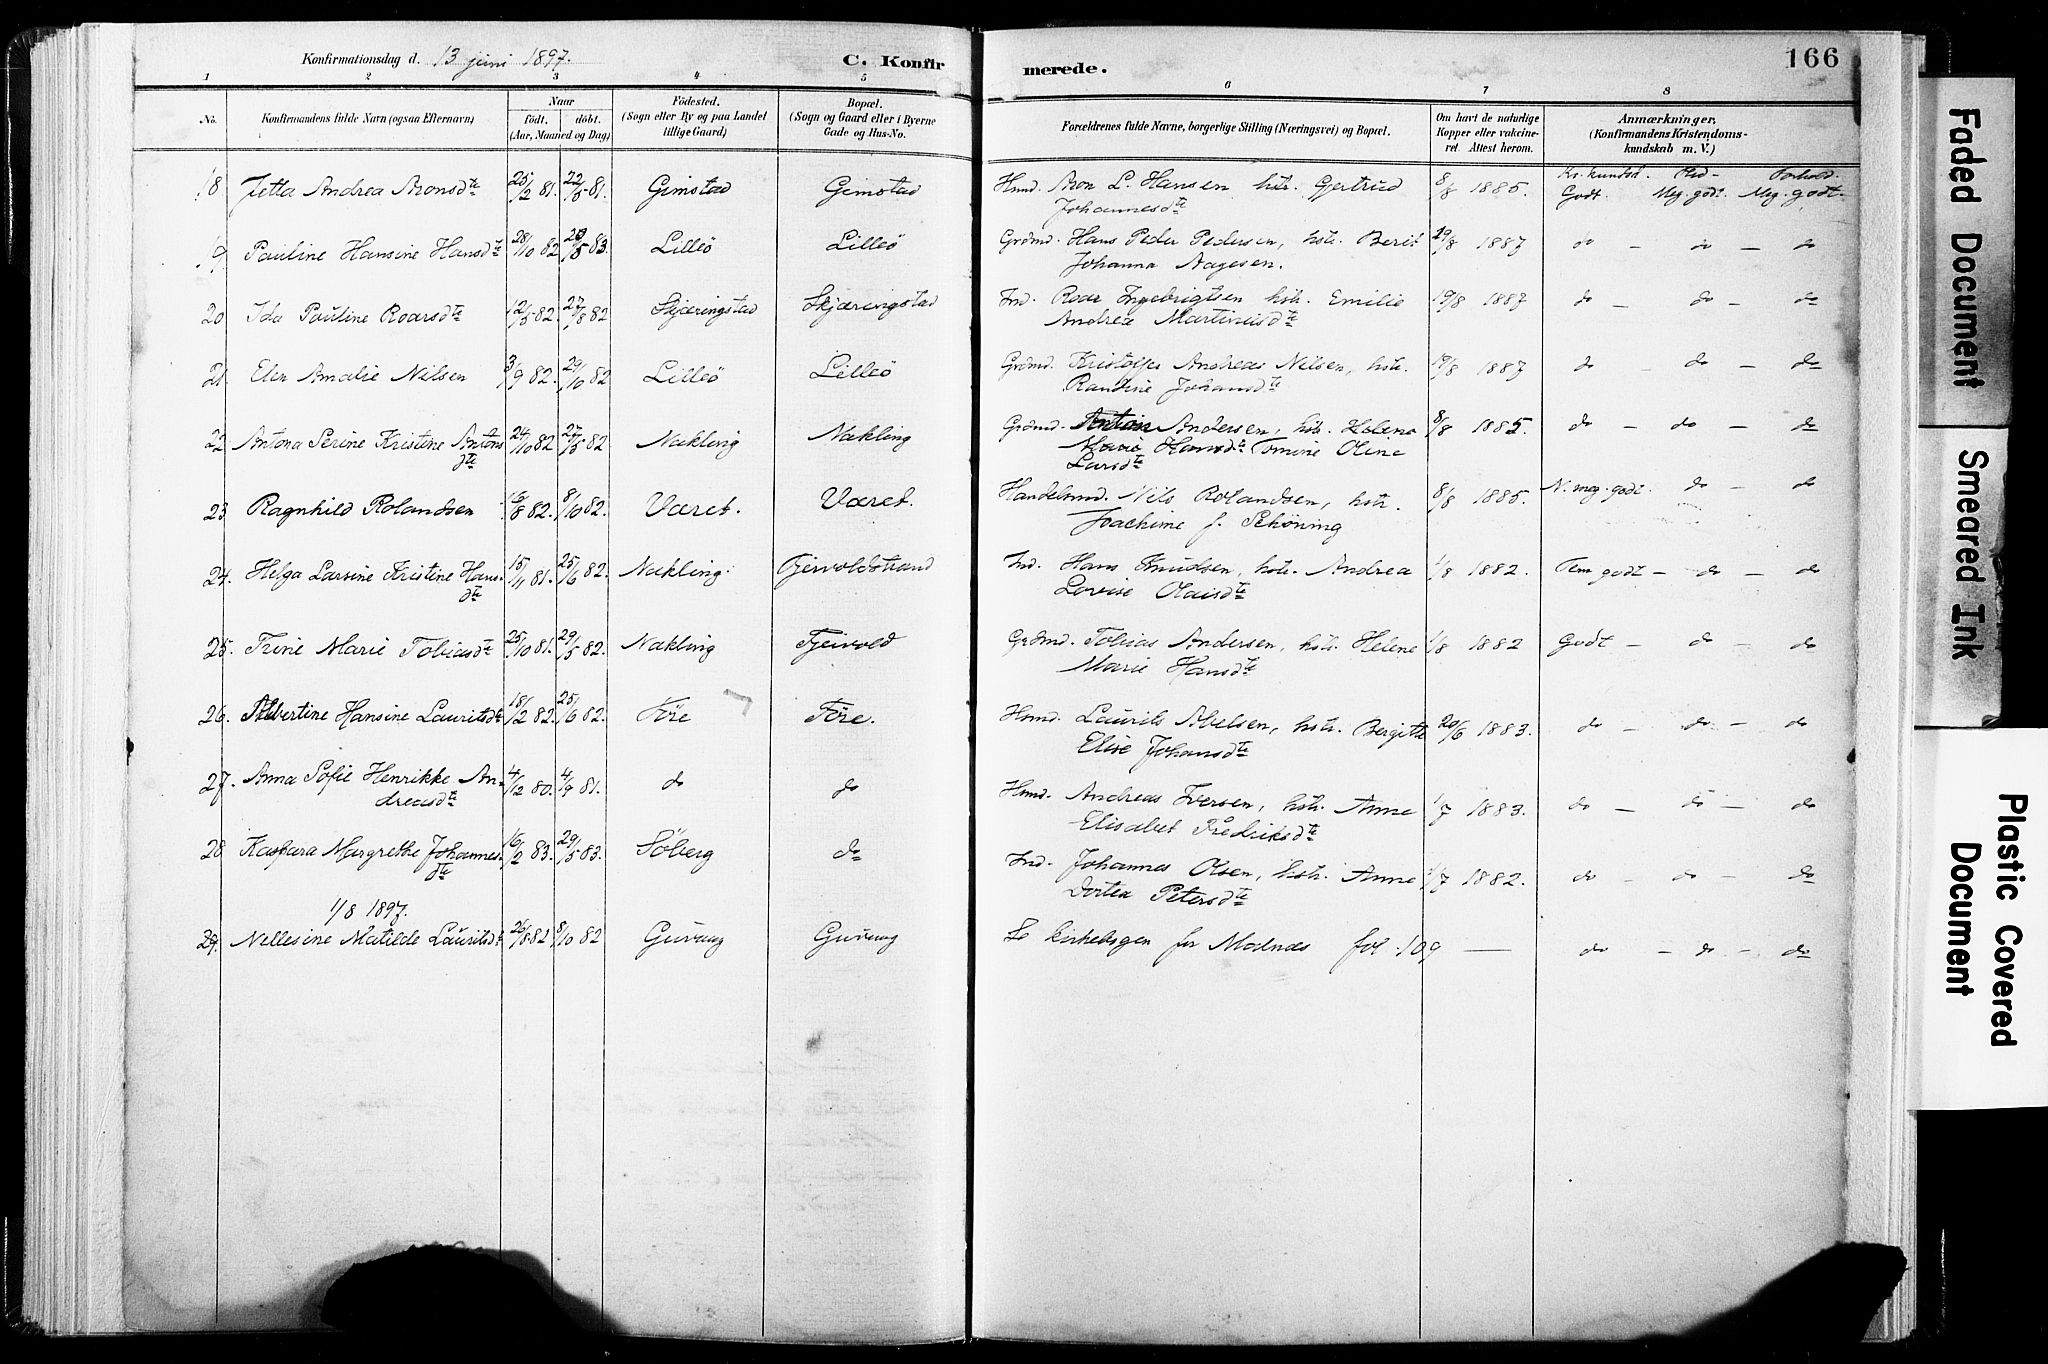 Konfirmationsdag d. 13 juni 1897.
C. Konfirmerede.
166
1 2 3 4 5 6 7 8
No.
Konfirmandens fulde Navn (ogsaa Efternavn)
Naar
født. døbt.
(Aar, Maaned og Dag)
Fødested.
(Sogn eller By og paa Landet
tillige Gaard)
Bopæl.
(Sogn og Gaard eller i Byerne
Gade og Hus-No.
Forældrenes fulde Navne, borgerlige Stilling (Næringsvei) og Bopæl.
Om havt de naturlige
Kopper eller vakcine-
ret. Attest herom.
Anmærkninger,
(Konfirmandens Kristendoms-
kundskab m. V.)
Kr. kundsk. Flid - Forhold.
18 Jetta Andrea Aronsdte 25/2 81. 22/5 81. Gimstad Gimstad Hmd. Aron L. Hansen hstr. Gjertrud 8/8 1885. Godt. Meg. godt. Meg. godt.
Johannesdte
19 Pauline Hansine Hansdte 28/10 82 /5 83. Lilleö Lilleö Grdmd. Hans Peder Pedersen, hstr. Berit 29/8 1887 do — do — do
Johanna Aagesen.
20 Ida Pauline Roarsdte 12/5 82. 27/8 82 Skjæringstad Skjæringstad Ind. Roar Ingebrigtsen hstr. Emilie 19/8 1887 do — do — do
Andrea Martinusdte
21 Elen Amalie Nilsen 3/9 82. 29/10 82 Lilleö Lilleö Grdmd. Kristoffer Andreas Nilsen, hstr. 19/8 1887 do — do — do
Randine Johansdte
22 Antona Serine Kristine Antons 24/10 82 27/5 82 Nakling Nakling Grdmd. Anton Andersen, hstr. Helene 8/8 1885. do — do — do
dte Marie Hansdte Tomine Oline
Larsdte
23 Ragnhild Rolandsen 16/8 82. 8/10 82. Været. Været. Handelsmd. Nils Rolandsen, hstr. 8/8 1885. N. meg. godt. do — do
Joachime f. Schöning
24. Helga Larsine Kristine Hans- 15/11 81. 25/6 82. Nakling. Fjervoldstrand Ind. Hans Knudsen, hstr. Andrea 1/8 1882. Tem godt — do — do
dte Lovise Olaisdte
25. Trine Marie Tobiasdte 25/10 81. 29/5 82. Nakling Fjeivold Grdmd. Tobias Andersen, hstr. Helene 1/8 1882 Godt — do — do
Marie Hansdte
26. Albertine Hansine Lauritsdte 18/2 82. 25/6 82. Före Före. Hmd. Laurits Abelsen, hstr. Bergitte 20/6 1883. do — do — do
Elise Johansdte
27. Anna Sofie Henrikke An- 4/12 80. 4/9 81. do do Hmd. Andreas Iversen, hstr. Anne 1/7 1883. do — do — do
dreasdte Elisabet Fredriksdte
28 Kaspara Margrethe Johannes- 16/2 83. 29/5 83. Söberg do Ind. Johannes Olsen, hstr. Anne 1/7 1882. do — do — do
dte Dortea Petersdte
1/8 1897.
29. Nellesine Matilde Lauritsdte 26/8 82 8/10 82 Guvaag Guvaag Se kirkebogen for Malnæs fol. 109 — do — do — do
Faded Document
Smeared Ink
Plastic Covered
Document